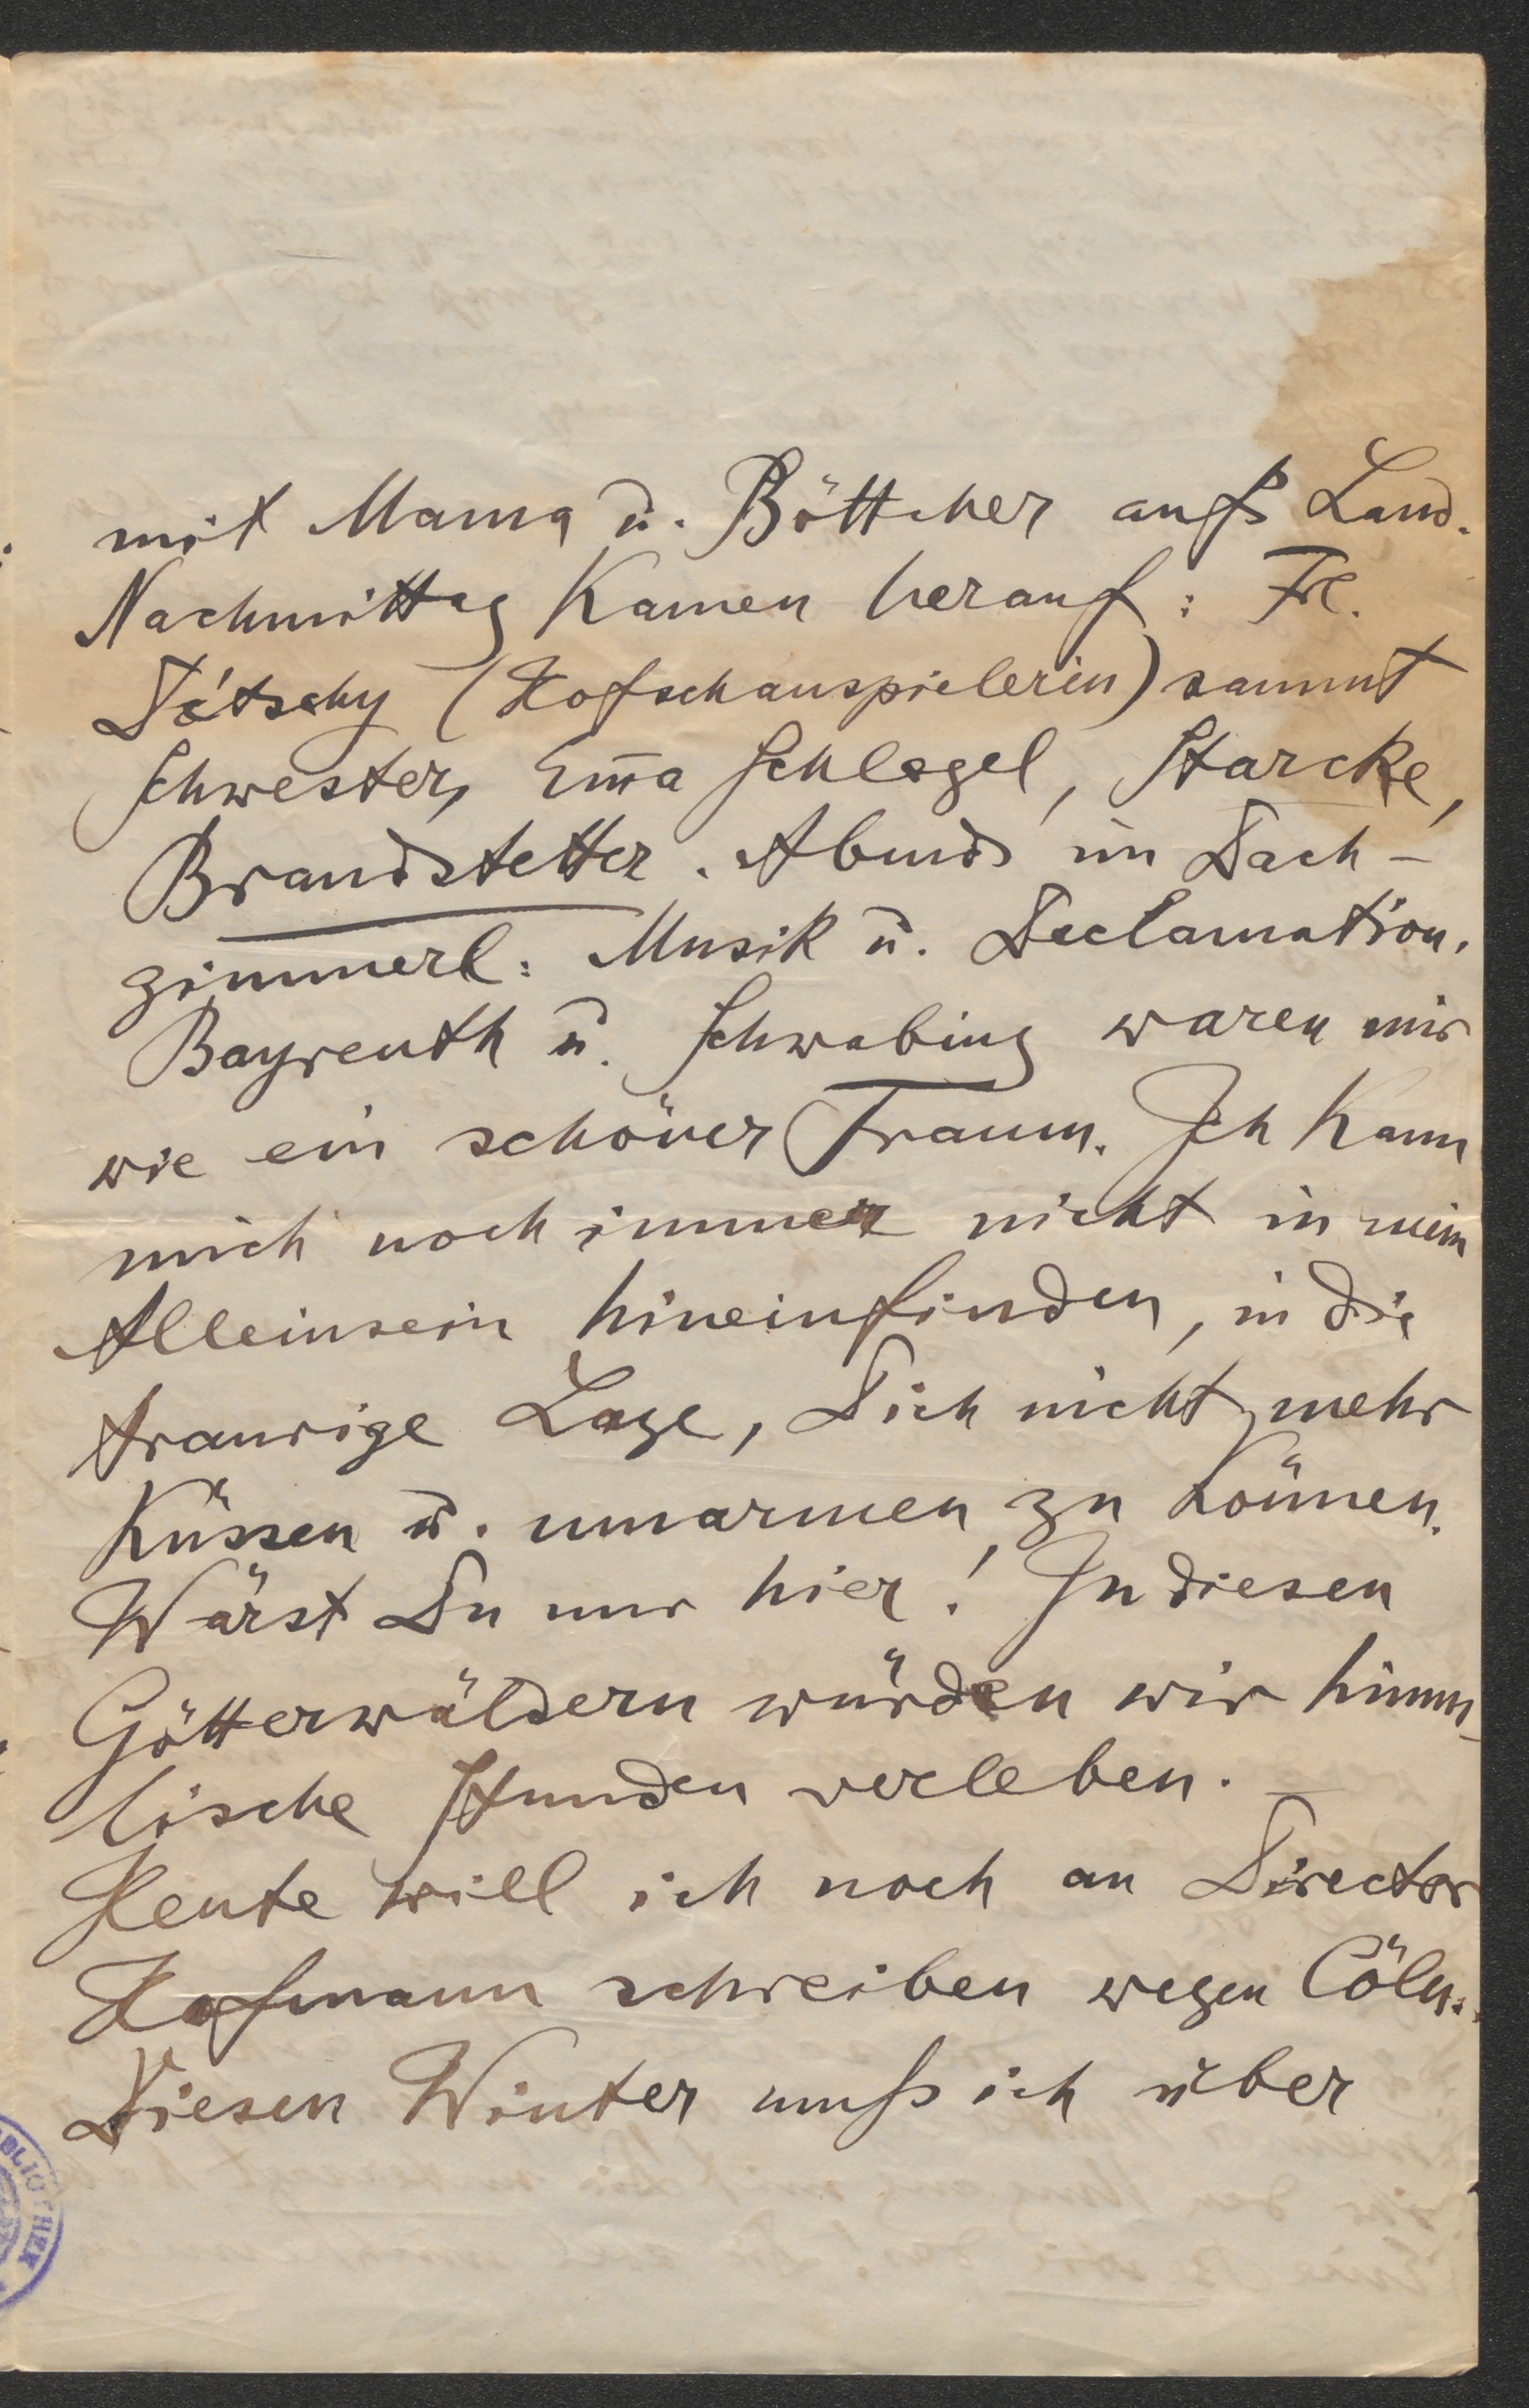 mit Mama u. Böttcher aufs Land.
Nachmittag kamen herauf: Frl.
Détschy (Hofschauspielerin) sammt
Schwester, Em̅a Schlegel, Starcke,
Brandstetter. Abends im Dach-
zimmerl: Musik u. Declamation.
Bayreuth u. Schwabing waren mir
wie ein schöner Traum. Ich kann
mich noch immer nicht in mein
Alleinsein hineinfinden, in die
traurige Lage, Dich nicht mehr
küssen u. umarmen zu können.
Wärst Du nur hier! In diesen
Götterwäldern würden wir himm-
lische Stunden verleben. —
Heute will ich noch an Director
Hofmann schreiben wegen Cöln.
Diesen Winter muß ich über
BLIOTHEK